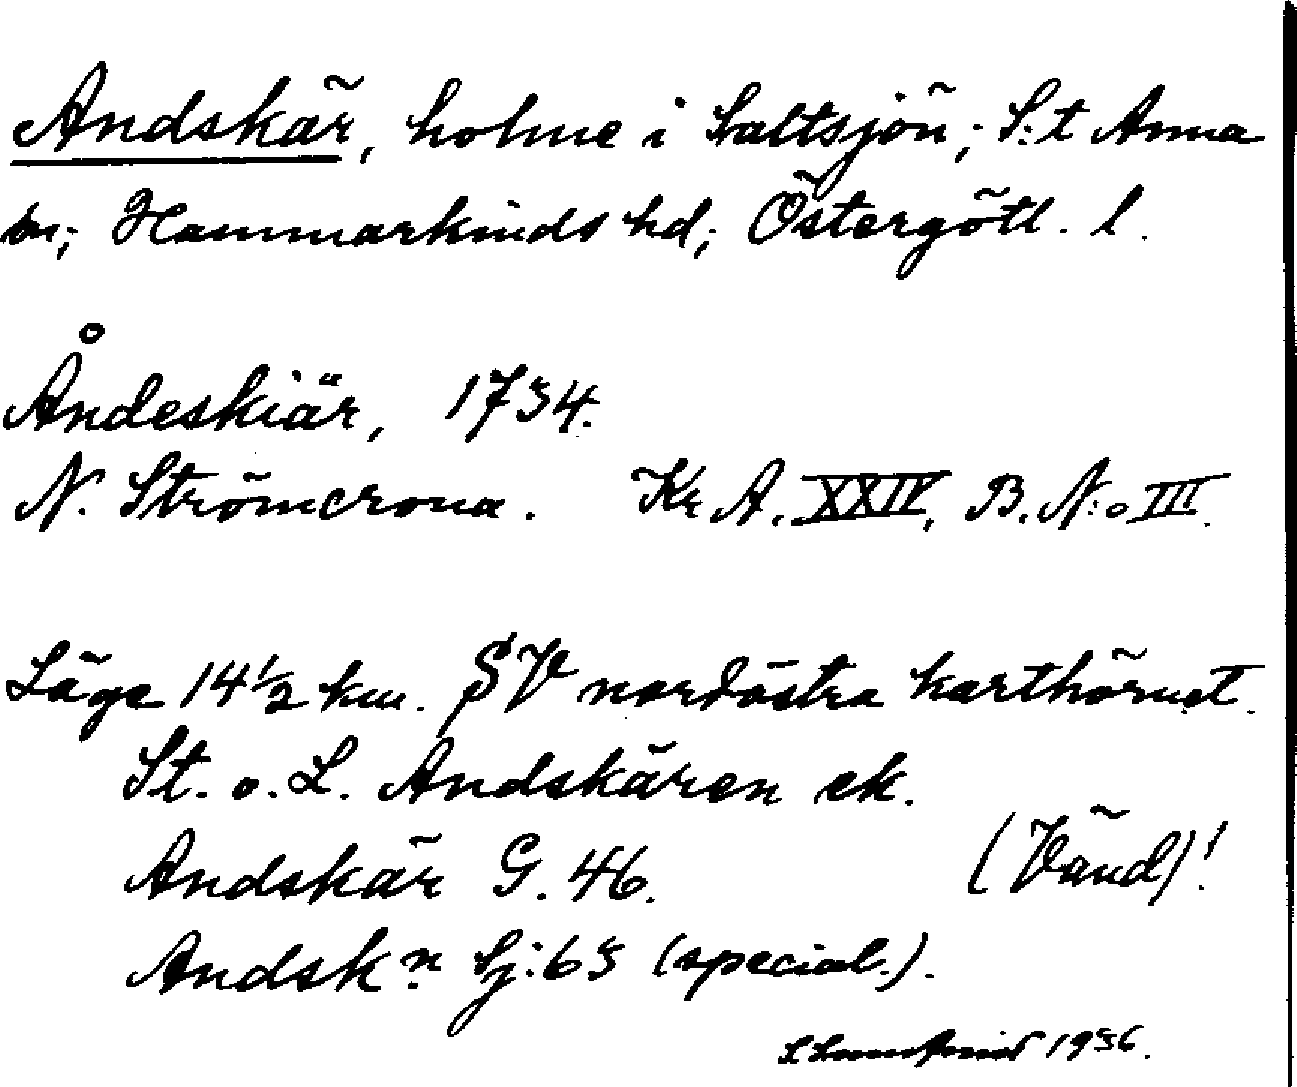 Andskär, holme i Saltsjön; S:t Anna
sn; Hammarkinds hd; Östergötl. l.
Åndeskiär, 1734.
N. Strömcrona. Kr. A. XXIV, B. N:o III.
Läge 14½ km. SV nordöstra karthörnet.
St. o. L. Andskären ek.
Andskär G. 46.
(Vänd)!
Andsk:n Sj:63 (special.).
1936.